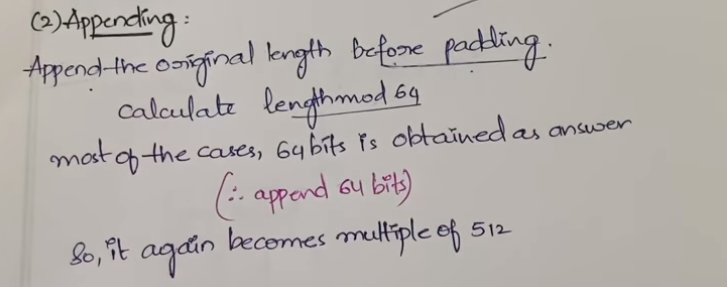 (2) Appending :
Append the original length before padding.
calculate length mod 64
most of the cases, 64 bits is obtained as answer
(∴ append 64 bits)
So, it again becomes multiple of 512